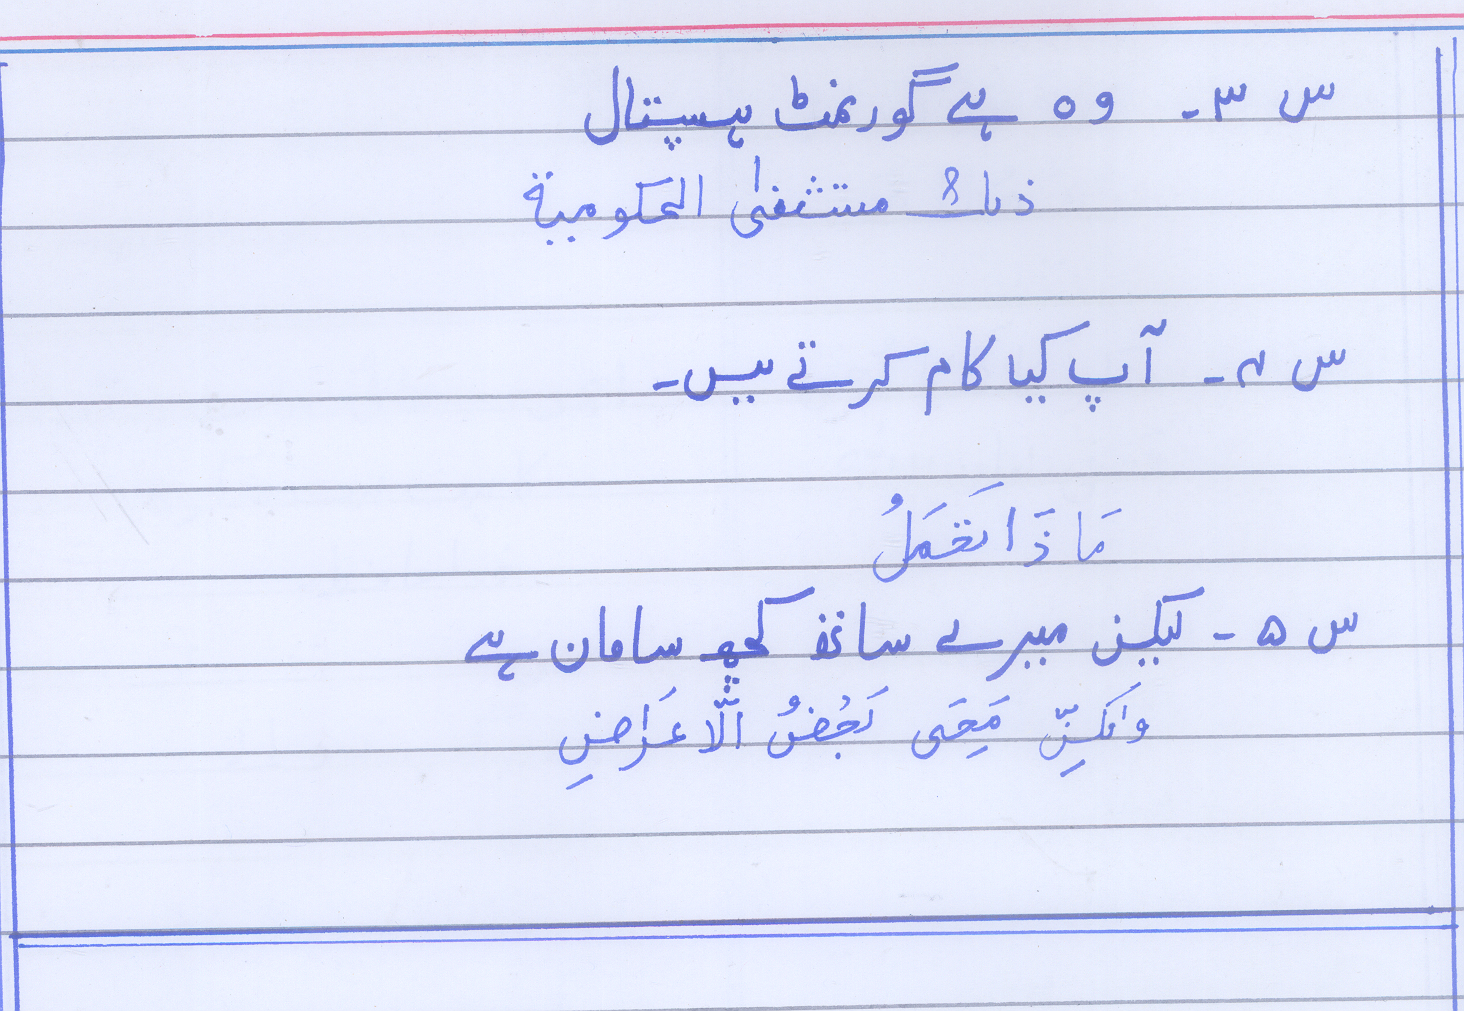 س ۳۔ وہ ہے گورنمنٹ ہسپتال
ذلك مستشفىٰ الحكومية
س ۴۔ آپ کیا کام کرتے ہیں۔
مَا ذَا تَعْمَلُ
س ۵۔ لیکن میرے ساتھ کچھ سامان ہے
وَلَكِنّ مَعِىَ بَعْضُ الْأَعَرَاضِ